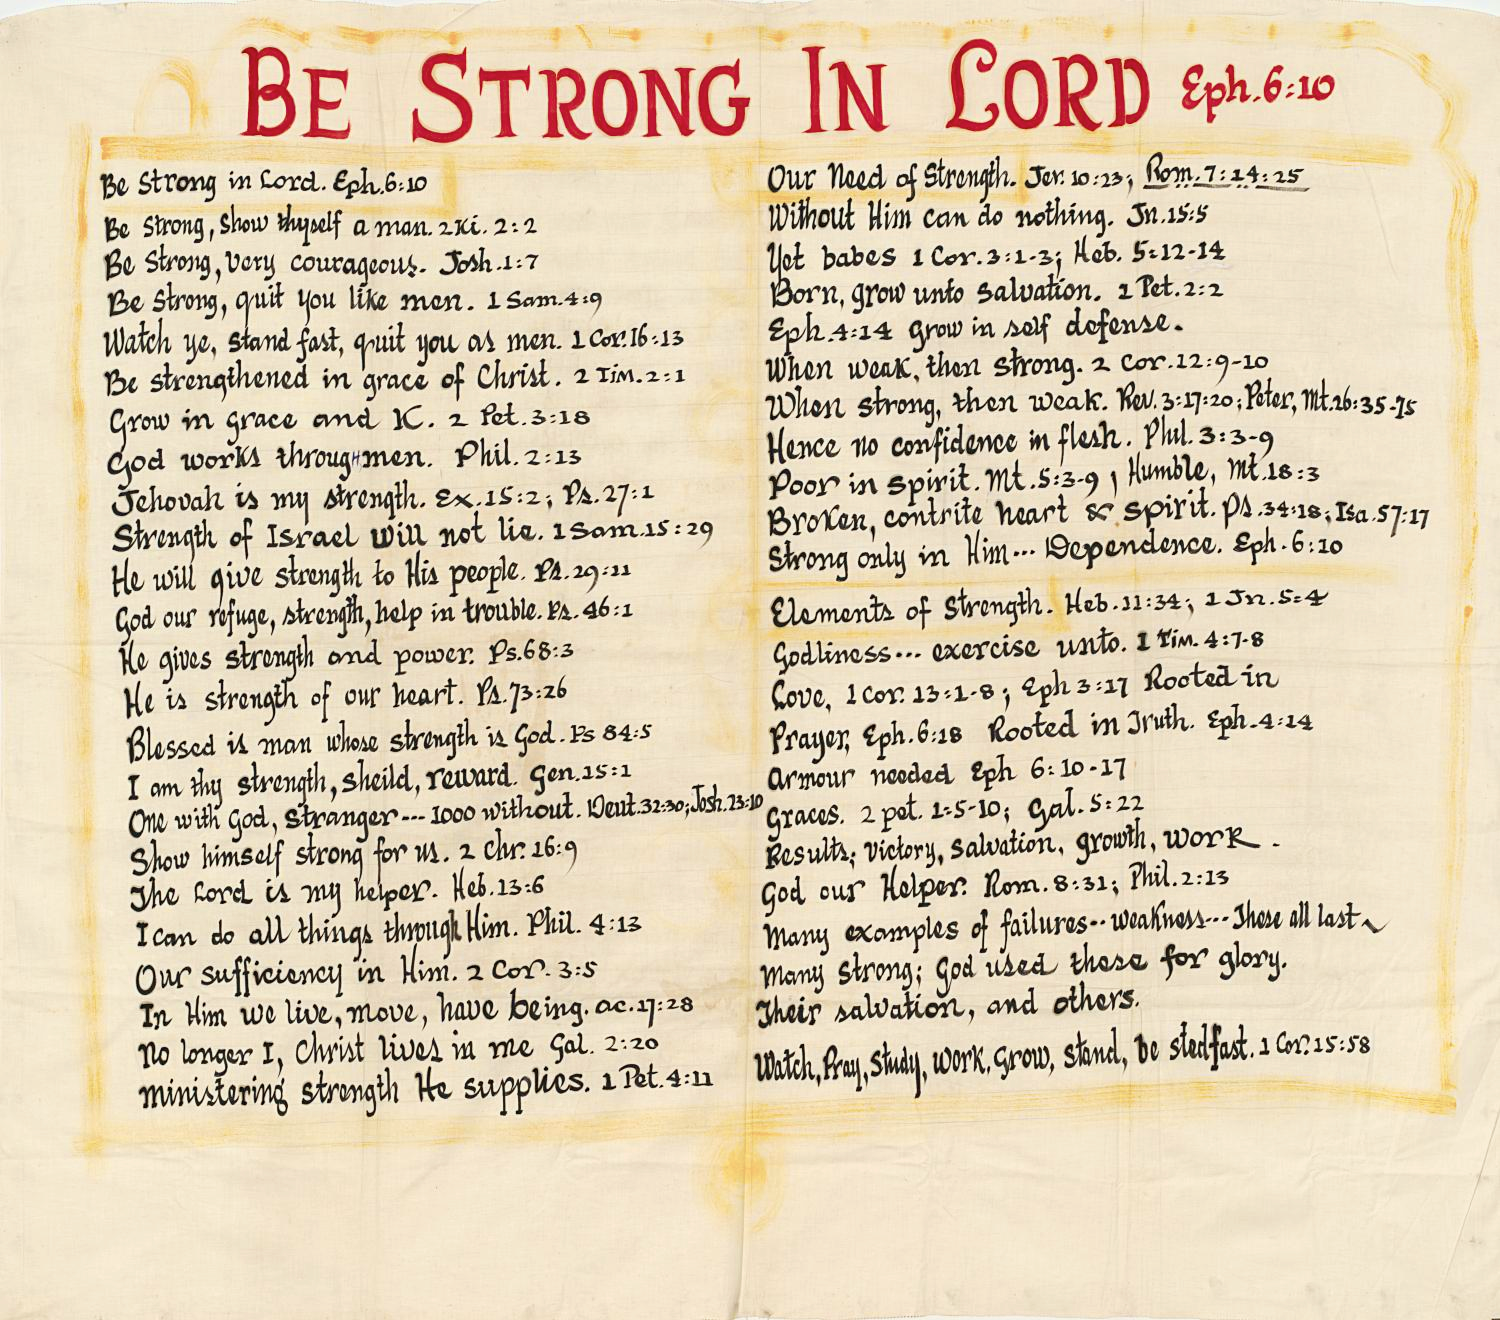 BE STRONG IN LORD Eph.6:10
Be Strong in Lord. Eph.6:10
Be Strong, show thyself a man. 2 Ki. 2:2
Be Strong, very courageous. Josh.1:7
Be Strong, quit you like men. 1 Sam.4:9
Watch ye, stand fast, quit you as men. 1 Cor.16:13
Be strengthened in grace of Christ. 2 Tim.2:1
Grow in grace and K. 2 Pet.3:18
God works through men. Phil.2:13
Jehovah is my strength. Ex.15:2; Ps.27:1
Strength of Israel will not lie. 1 Sam.15:29
He will give strength to His people. Ps.29:11
God our refuge, strength, help in trouble. Ps.46:1
He gives strength and power. Ps.68:3
He is strength of our heart. Ps.73:26
Blessed is man whose strength is God. Ps 84:5
I am thy strength, sheild, reward. Gen.15:1
One with God, Stranger--- 1000 without. Deut.32:30; Josh.23:10
Show himself strong for us. 2 Chr. 16:9
The Lord is my helper. Heb.13:6
I can do all things through Him. Phil. 4:13
Our sufficiency in Him. 2 Cor. 3:5
In Him we live, move, have being. Ac.17:28
No longer I, Christ lives in me Gal. 2:20
ministering strength He supplies. 1 Pet.4:11
Our Need of Strength. Jer. 10:23; Rom. 7:14:25
Without Him can do nothing. Jn.15:5
Yet babes 1 Cor.3:1-3; Heb. 5:12-14
Born, grow unto salvation. 1 Pet.2:2
Eph.4:14 Grow in self defense.
When weak, then strong. 2 Cor.12:9-10
When strong, then weak. Rev. 3:17:20; Peter, Mt.26:35-75
Hence no confidence in flesh. Phil. 3:3-9
Poor in spirit. Mt. 5:3-9; Humble, Mt.18:3
Broken, contrite heart & spirit. Ps.34:18; Isa.57:17
Strong only in Him... Dependence. Eph. 6:10
Elements of Strength. Heb.11:34; 1 Jn.5:4
Godliness... exercise unto. 1 Tim. 4:7-8
Love, 1 Cor. 13:1-8; Eph 3:17 Rooted in
Prayer, Eph.6:18 Rooted in Truth. Eph.4:14
Armour needed Eph 6:10-17
Graces. 2 pet. 1:5-10; Gal. 5:22
Results; Victory, Salvation, growth, WORK.
God our Helper. Rom. 8:31; Phil.2:13
Many examples of failures-- weakness--- These all last
Many Strong; God used these for glory.
Their salvation, and others.
Watch, Pray, Study, Work, Grow, Stand, be stedfast. 1 Cor.15:58